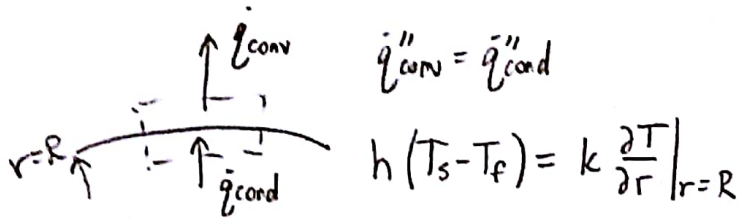 q̇conv
q̇″conv = q̇″cond
r=R
q̇cond
h(Ts-Tf) = k ∂T/∂r |r=R